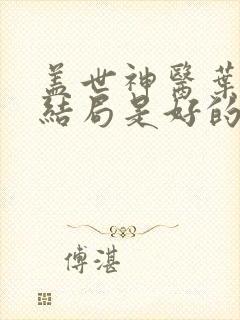 盖世神醫葉
結局是好的
傅湛